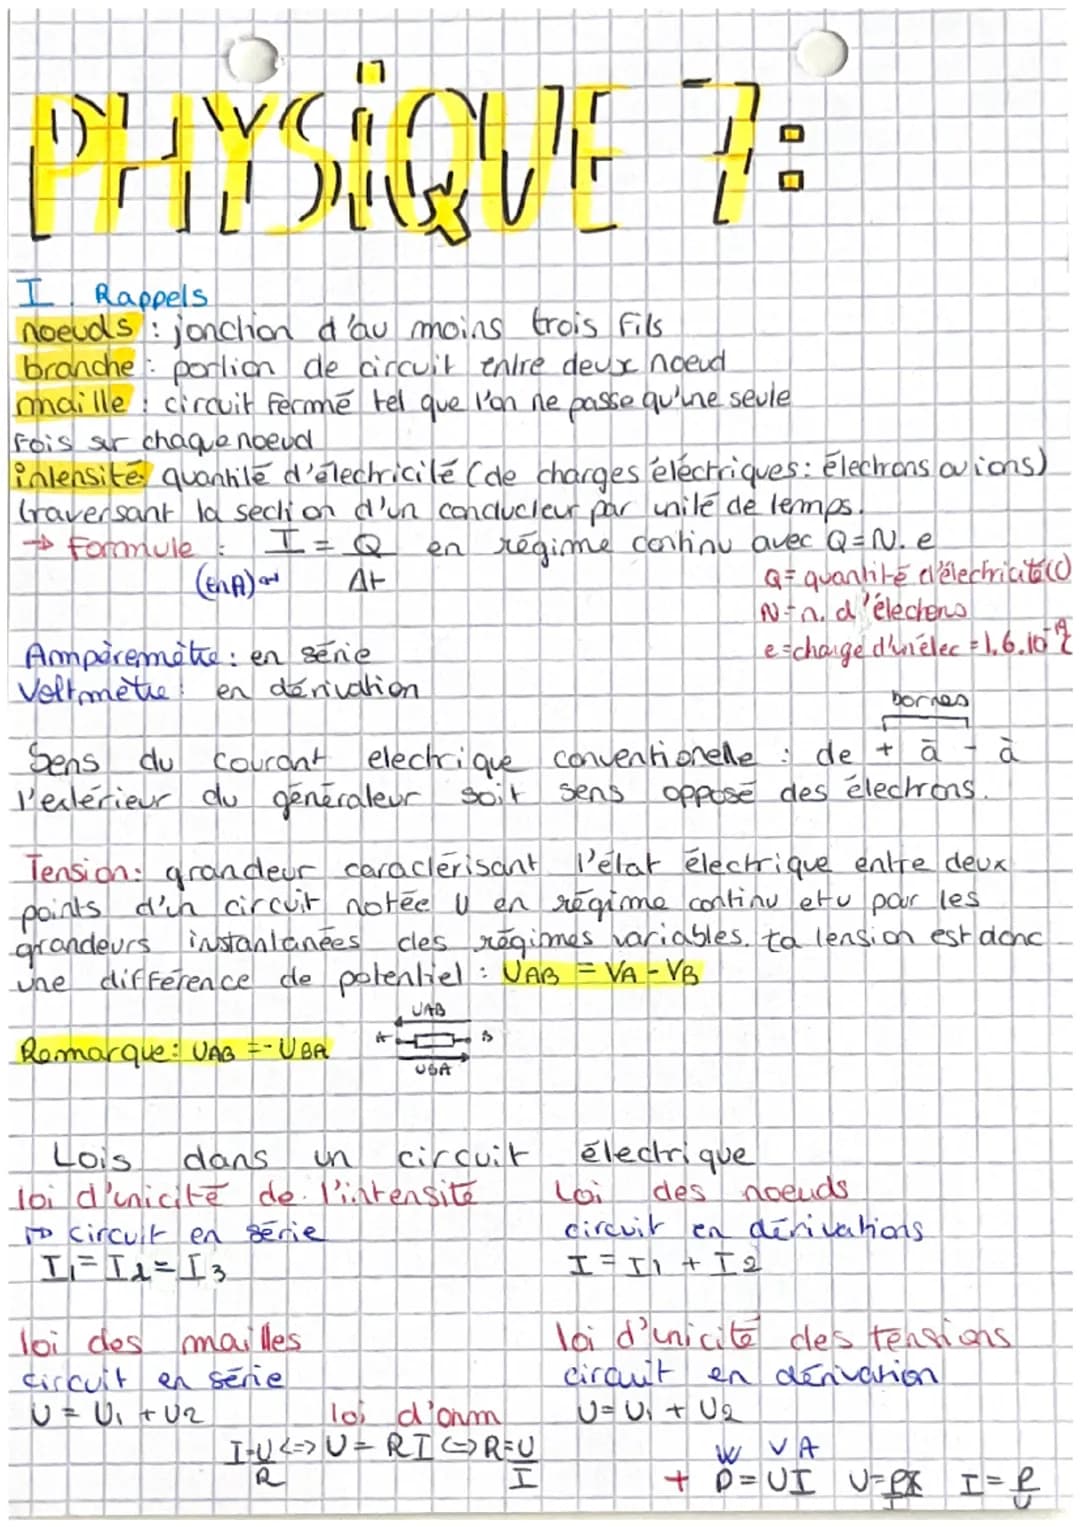 PHYSIQUE 7:
I. Rappels
noeuds : jonction d'au moins trois fils
branche : portion de circuit entre deux noeud
maille : circuit fermé tel que l'on ne passe qu'une seule
fois sur chaque noeud
intensité quantité d'électricité (de charges électriques : électrons ou ions)
traversant la section d'un conducteur par unité de temps.
→ formule : I = Q/Δt en régime continu avec Q = N. e
(en A)
Q = quantité d'électricité (C)
N = n. d'électrons
e = charge d'un élec = 1,6.10⁻¹⁹ C
Ampèremètre : en série
Voltmètre : en dérivation
bornes
Sens du courant electrique conventionelle : de + à - à
l'extérieur du générateur soit sens opposé des électrons.
Tension : grandeur caractérisant l'état électrique entre deux
points d'un circuit notée U en régime continu et u pour les
grandeurs instantanées des régimes variables. ta tension est donc
une différence de potentiel : UAB = VA - VB
UAB
A B
Remarque : UAB = - UBA
UBA
Lois dans un circuit électrique
loi d'unicité de l'intensité
→ circuit en série
I1 = I2 = I3
Loi des noeuds
circuit en dérivations
I = I1 + I2
loi des mailles
circuit en série
U = U1 + U2
loi d'unicité des tensions
circuit en dérivation
U = U1 + U2
loi d'ohm
I = U/R <=> U = RI <=> R = U/I
W V A
+ P = UI U = P/I I = P/U